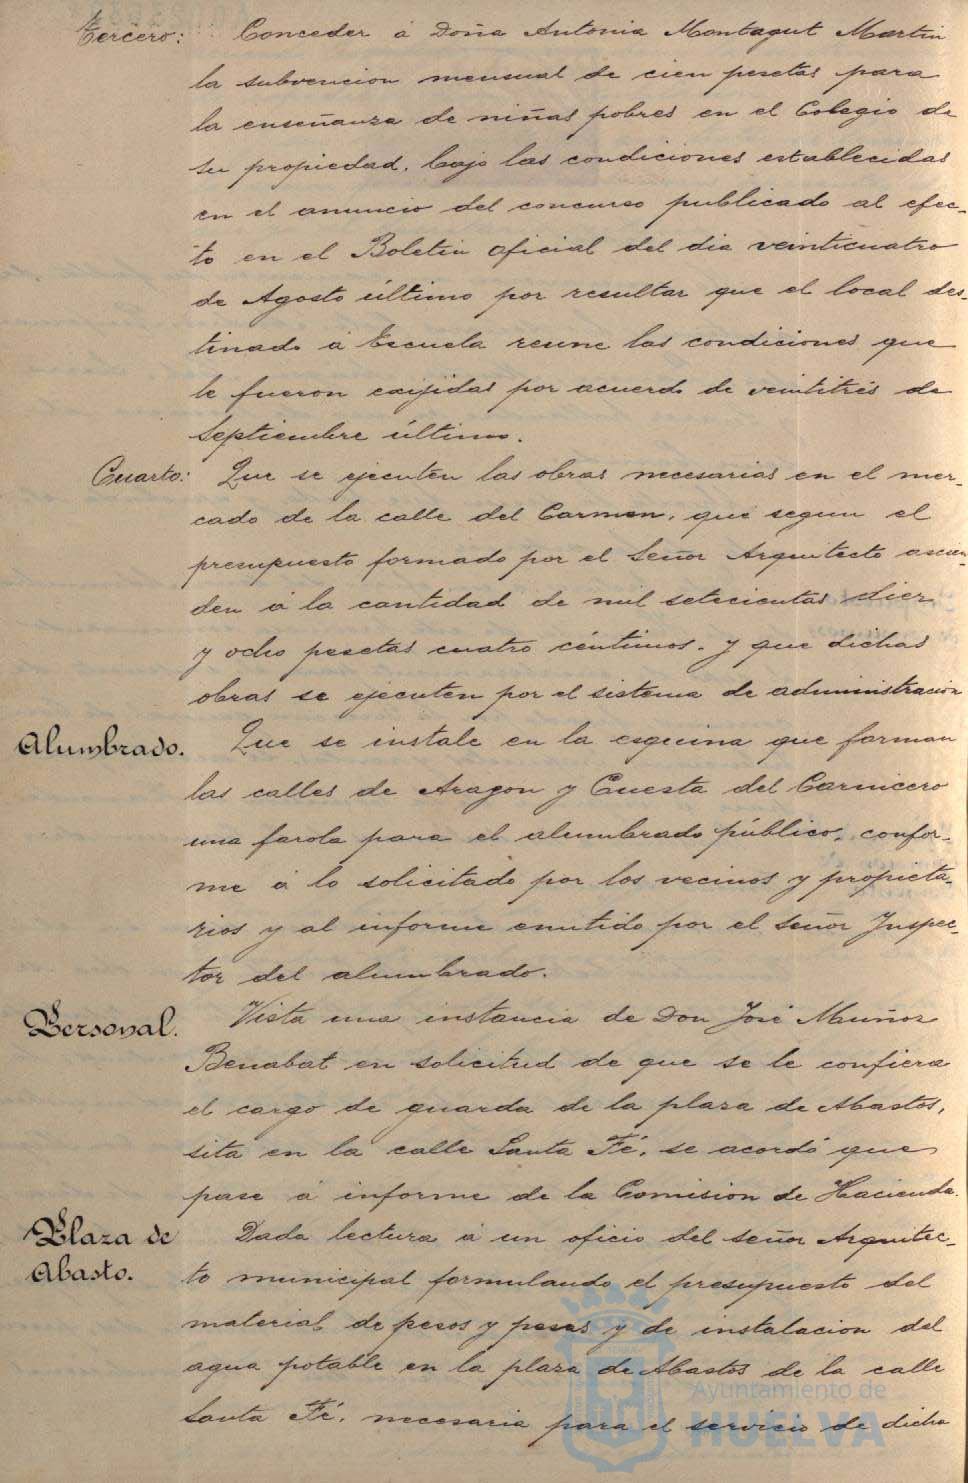 Tercero: Conceder á Doña Antonia Montagut Martin
la subvencion mensual de cien pesetas para
la enseñanza de niñas pobres en el Colegio de
su propiedad, bajo las condiciones establecidas
en el anuncio del concurso publicado al efec-
to en el Boletin oficial del dia veinticuatro
de Agosto último por resultar que el local des-
tinado á Escuela reune las condiciones que
le fueron exijidas por acuerdo de veintitrés de
Septiembre último.
Cuarto: Que se ejecuten las obras necesarias en el mer-
cado de la calle del Carmen, que segun el
presupuesto formado por el Señor Arquitecto ascien-
den á la cantidad de mil setecientas diez
y ocho pesetas cuatro céntimos. y que dichas
obras se ejecuten por el sistema de administracion
Alumbrado. Que se instale en la esquina que forman
las calles de Aragon y Cuesta del Carnicero
una farola para el alumbrado público, confor-
me á lo solicitado por los vecinos y propieta-
rios y al informe emitido por el señor Inspec-
tor del alumbrado.
Personal. Vista una instancia de Don José Muñoz
Benabat en solicitud de que se le confiera
el cargo de guarda de la plaza de Abastos,
sita en la calle Santa Fé, se acordó que
pase á informe de la Comision de Hacienda.
Plaza de Abasto. Dada lectura á un oficio del señor Arquitec-
to municipal formulando el presupuesto del
material de pesos y pesas y de instalacion del
agua potable en la plaza de Abastos de la calle
Santa Fé, necesaria para el servicio de dicha
Ayuntamiento de
HUELVA